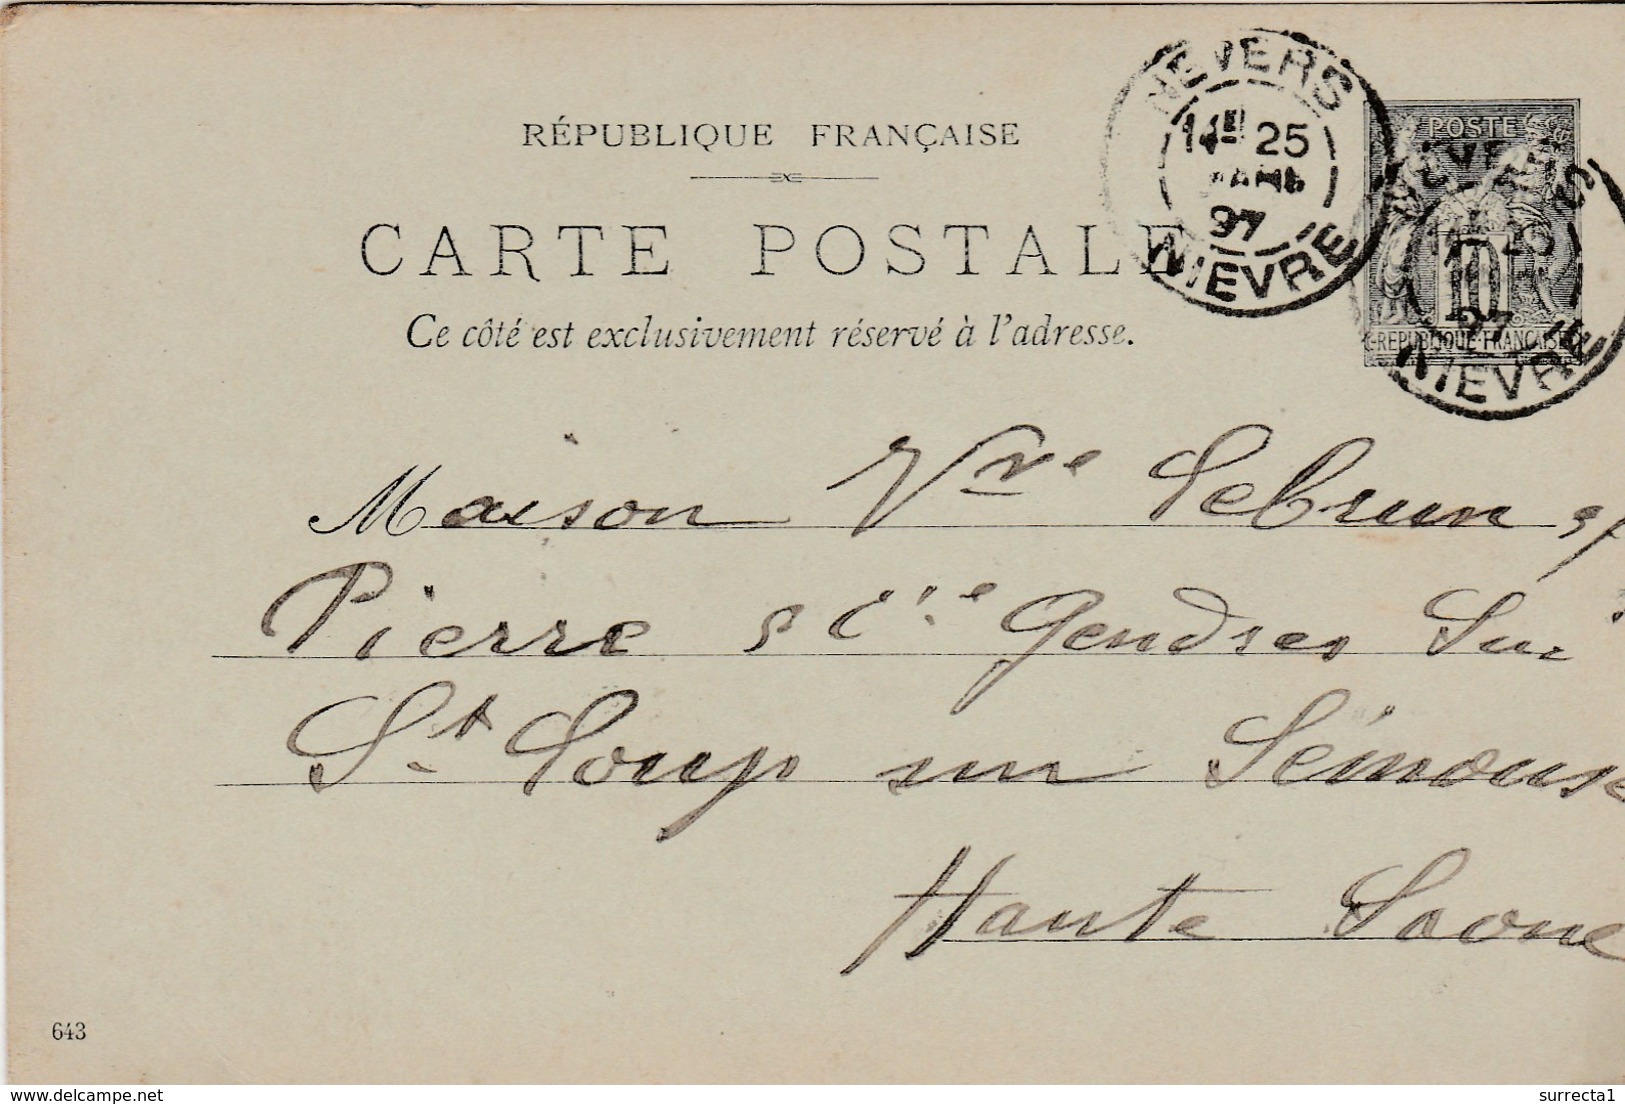 NEVERS
14E 25
97
NIEVRE
POSTE
10
97
NIEVRE
REPUBLIQUE FRANÇAISE
RÉPUBLIQUE FRANÇAISE
CARTE POSTALE
Ce côté est exclusivement réservé à l'adresse.
Maison Vve Lebrun
Pierre & Cie Gendres Sui
St Loup sur Sémouse
Haute Saone
643
delcampe.net
surrecta1